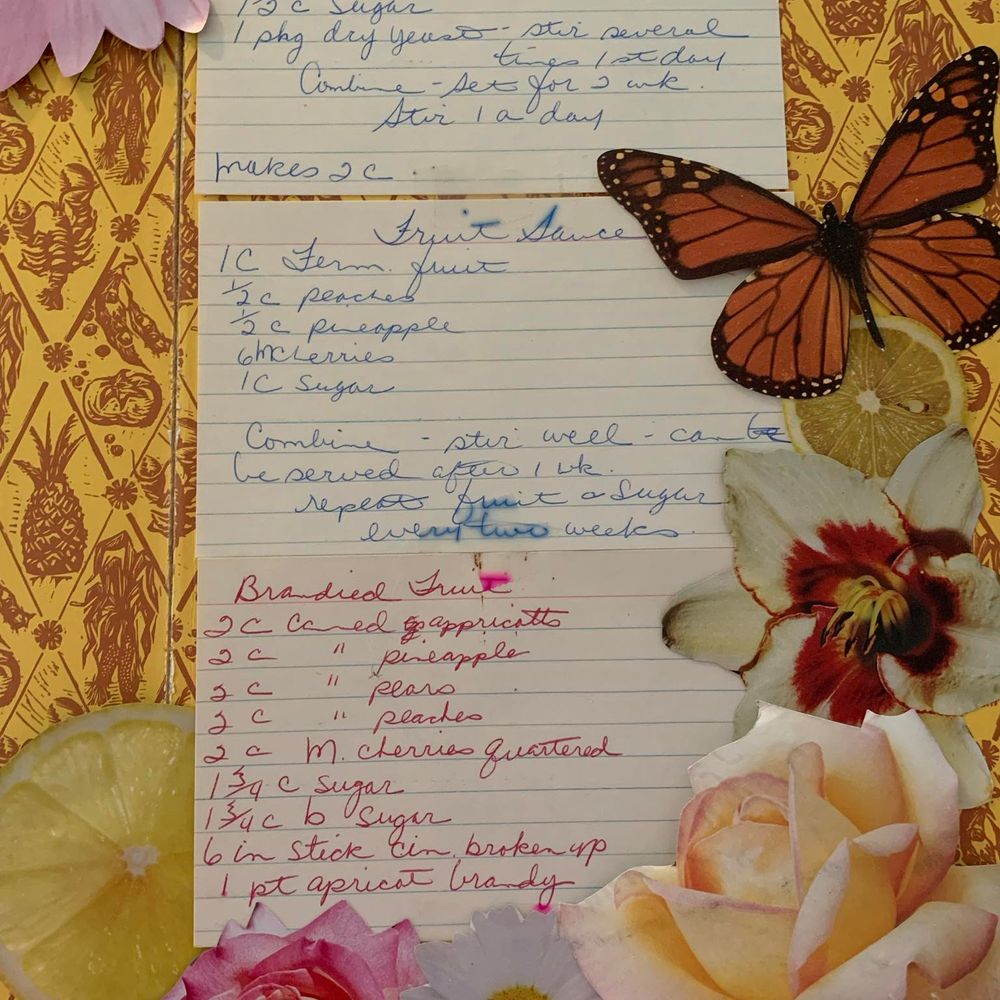 1 2 c Sugar
1 pkg dry yeast - stir several
times 1st day
Combine - set for 2 wk.
Stir 1 a day
makes 2 c
Fruit Sauce
1 C Ferm. fruit
1/2 c peaches
1/2 c pineapple
6 M cherries
1 C Sugar
Combine - stir well - can be
be served after 1 wk.
repeat fruit & Sugar
every two weeks.
Brandied Fruit
2 c caned appricotts
2 c " pineapple
2 c " pears
2 c " peaches
2 c M. cherries quartered
1 3/4 c Sugar
1 3/4 c b Sugar
6 in stick cin. broken up
1 pt apricot brandy